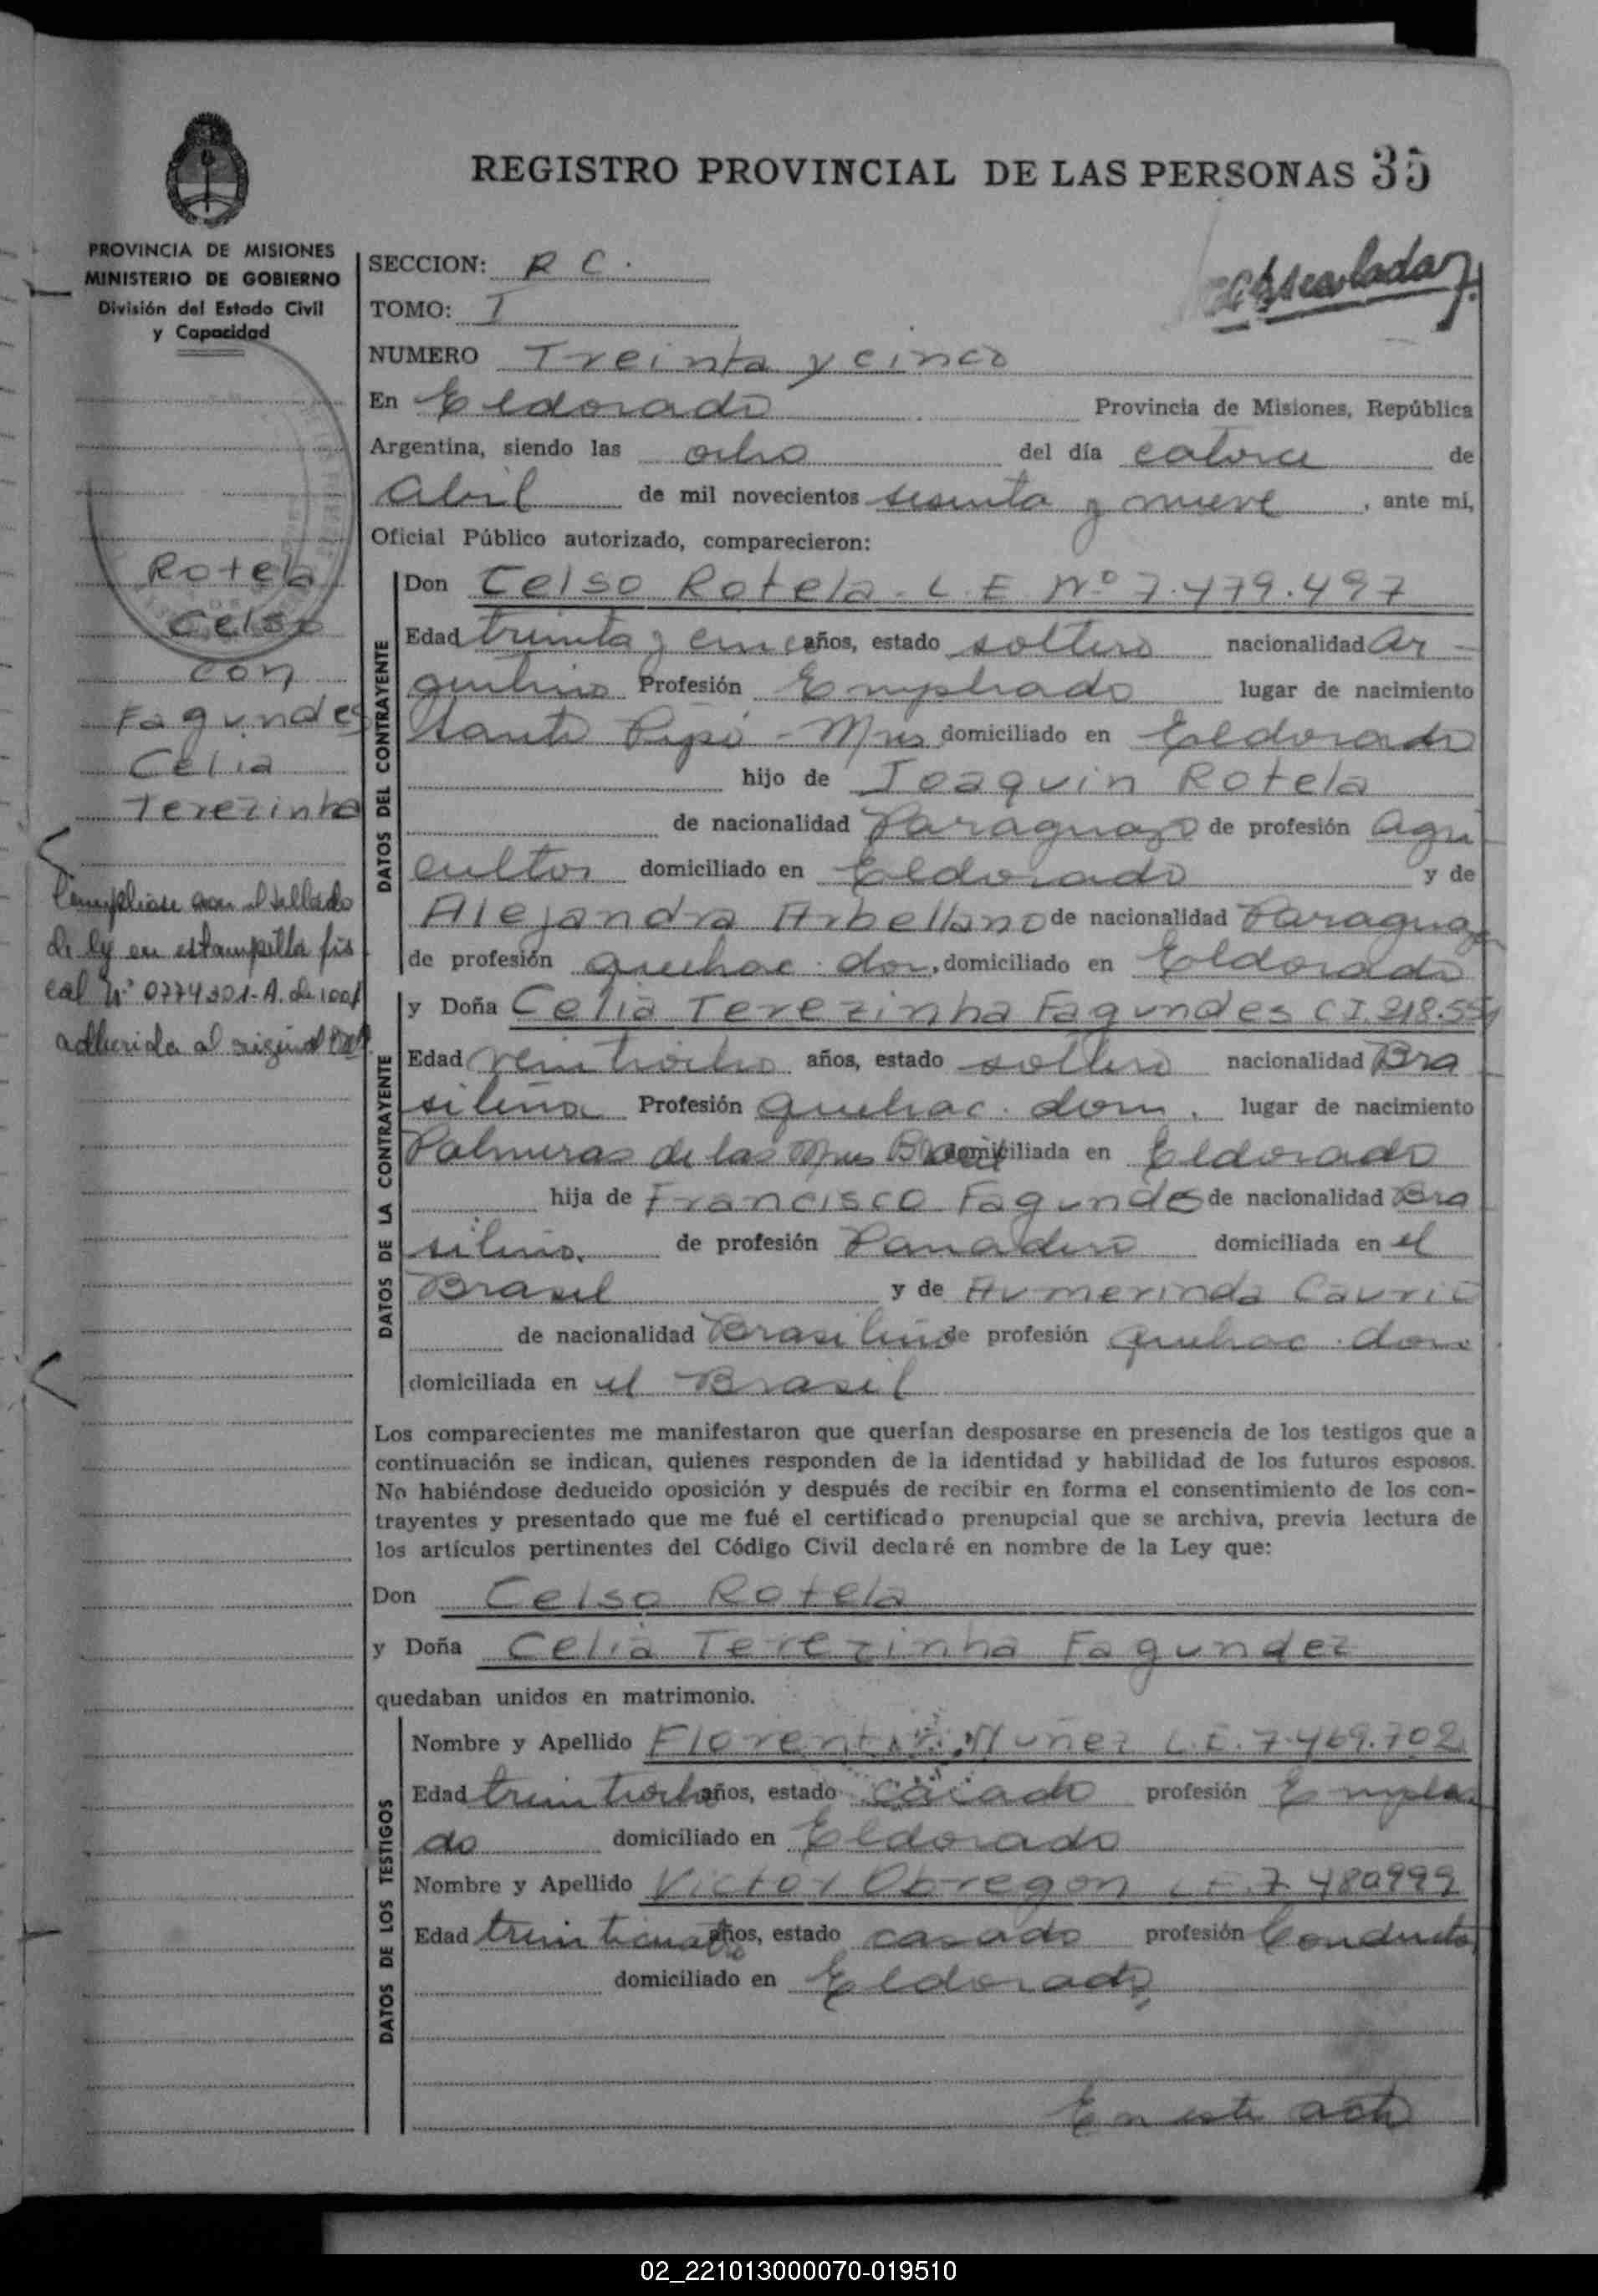 REGISTRO PROVINCIAL DE LAS PERSONAS 35
PROVINCIA DE MISIONES
MINISTERIO DE GOBIERNO
División del Estado Civil
y Capacidad
SECCION: R C.
TOMO: I
NUMERO Treinta y cinco
En Eldorado Provincia de Misiones, República
Argentina, siendo las ocho del día catorce de
Abril de mil novecientos sesenta y nueve, ante mi,
Oficial Público autorizado, comparecieron:
Rotela
Celso
con
Fagundes
Celia
Terezinha
Cumpliose con el sellado
de ley en estampilla fis
cal Nº 0774301-A. de 100
adherida al original
DATOS DEL CONTRAYENTE
Don Celso Rotela. L.E Nº 7.479.497
Edad treinta y cinc años, estado soltero nacionalidad Ar-
gentino Profesión Empleado lugar de nacimiento
Santo Pipó - Mnes domiciliado en Eldorado
hijo de Joaquin Rotela
de nacionalidad Paraguayo de profesión Agri
cultor domiciliado en Eldorado y de
Alejandra Arbellano de nacionalidad Paraguay
de profesión quehac. dom, domiciliado en Eldorado
DATOS DE LA CONTRAYENTE
y Doña Celia Terezinha Fagundes C I. 218.55
Edad veintiocho años, estado soltera nacionalidad Bra
sileña Profesión quehac. dom. lugar de nacimiento
Palmeras de las Mnes Brasil domiciliada en Eldorado
hija de Francisco Fagundes de nacionalidad Bra
sileño. de profesión Panadero domiciliada en el
Brasil y de Aumerinda Cauric
de nacionalidad Brasileña de profesión quehac. dom
domiciliada en el Brasil
Los comparecientes me manifestaron que querían desposarse en presencia de los testigos que a
continuación se indican, quienes responden de la identidad y habilidad de los futuros esposos.
No habiéndose deducido oposición y después de recibir en forma el consentimiento de los con-
trayentes y presentado que me fué el certificado prenupcial que se archiva, previa lectura de
los artículos pertinentes del Código Civil declaré en nombre de la Ley que:
Don Celso Rotela
y Doña Celia Terezinha Fagundez
quedaban unidos en matrimonio.
DATOS DE LOS TESTIGOS
Nombre y Apellido Florentin Nuñez L.E. 7.469.702
Edad treintiocho años, estado casado profesión Emplea
do domiciliado en Eldorado
Nombre y Apellido Victor Obregon L.E. 7.480999
Edad treinticuatro años, estado casado profesión Conductor
domiciliado en Eldorado
En este acto
02_221013000070-019510